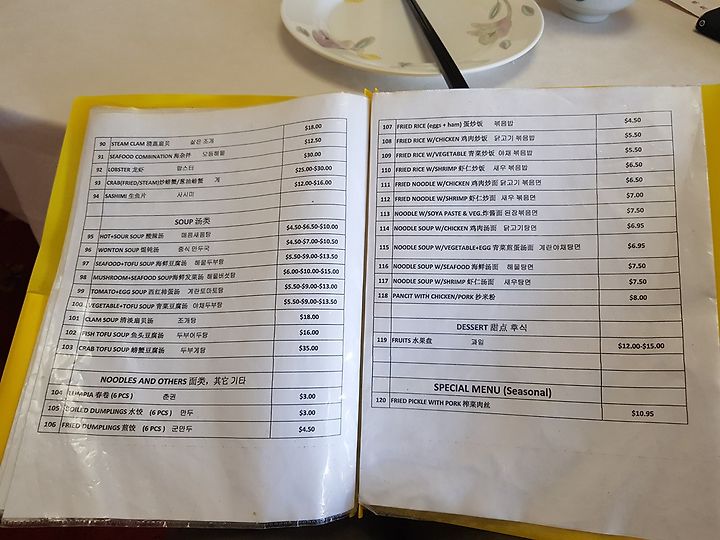 90 STEAM CLAM 清蒸扇贝 삶은 조개 $18.00
91 SEAFOOD COMBINATION 海杂拌 모둠해물 $12.50
92 LOBSTER 龙虾 랍스터 $30.00
93 CRAB(FRIED/STEAM)炒螃蟹/葱油螃蟹 게 $25.00-$30.00
94 SASHIMI 生鱼片 사시미 $12.00-$16.00
SOUP 汤类
95 HOT+SOUR SOUP 酸辣汤 매콤새콤탕 $4.50-$6.50-$10.00
96 WONTON SOUP 馄饨汤 중식 만두국 $4.50-$7.00-$10.50
97 SEAFOOD+TOFU SOUP 海鲜豆腐汤 해물두부탕 $5.50-$9.00-$13.50
98 MUSHROOM+SEAFOOD SOUP海鲜发菜汤 해물버섯탕 $6.00-$10.00-$15.00
99 TOMATO+EGG SOUP 西红柿蛋汤 계란토마토탕 $5.50-$9.00-$13.00
100 VEGETABLE+TOFU SOUP 青菜豆腐汤 야채두부탕 $5.50-$9.00-$13.50
101 CLAM SOUP 清淡扇贝汤 조개탕 $18.00
102 FISH TOFU SOUP 鱼头豆腐汤 두부어두탕 $16.00
103 CRAB TOFU SOUP 螃蟹豆腐汤 두부게탕 $35.00
NOODLES AND OTHERS 面类，其它 기타
104 LUMPIA 春卷 (6 PCS ) 춘권 $3.00
105 BOILED DUMPLINGS 水饺 (6 PCS ) 만두 $3.00
106 FRIED DUMPLINGS 煎饺 (6 PCS ) 군만두 $4.50
107 FRIED RICE (eggs + ham) 蛋炒饭 볶음밥 $4.50
108 FRIED RICE W/CHICKEN 鸡肉炒饭 닭고기 볶음밥 $5.50
109 FRIED RICE W/VEGETABLE 青菜炒饭 야채 볶음밥 $5.50
110 FRIED RICE W/SHRIMP 虾仁炒饭 새우 볶음밥 $6.50
111 FRIED NOODLE W/CHICKEN 鸡肉炒面 닭고기 볶음면 $6.50
112 FRIED NOODLE W/SHRIMP 虾仁炒面 새우 볶음면 $7.00
113 NOODLE W/SOYA PASTE & VEG.炸酱面 된장볶음면 $7.50
114 NOODLE SOUP W/CHICKEN 鸡肉汤面 닭고기탕면 $6.95
115 NOODLE SOUP W/VEGETABLE+EGG 青菜煎蛋汤面 계란야채탕면 $6.95
116 NOODLE SOUP W/SEAFOOD 海鲜汤面 해물탕면 $7.50
117 NOODLE SOUP W/SHRIMP 虾仁汤面 새우탕면 $7.50
118 PANCIT WITH CHICKEN/PORK 炒米粉 $8.00
DESSERT 甜点 후식
119 FRUITS 水果盘 과일 $12.00-$15.00
SPECIAL MENU (Seasonal)
120 FRIED PICKLE WITH PORK 榨菜肉丝 $10.95